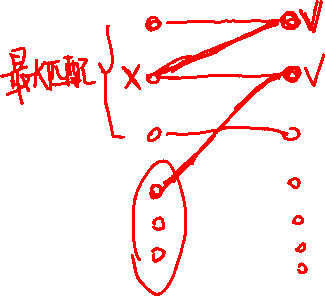 最大匹配
X